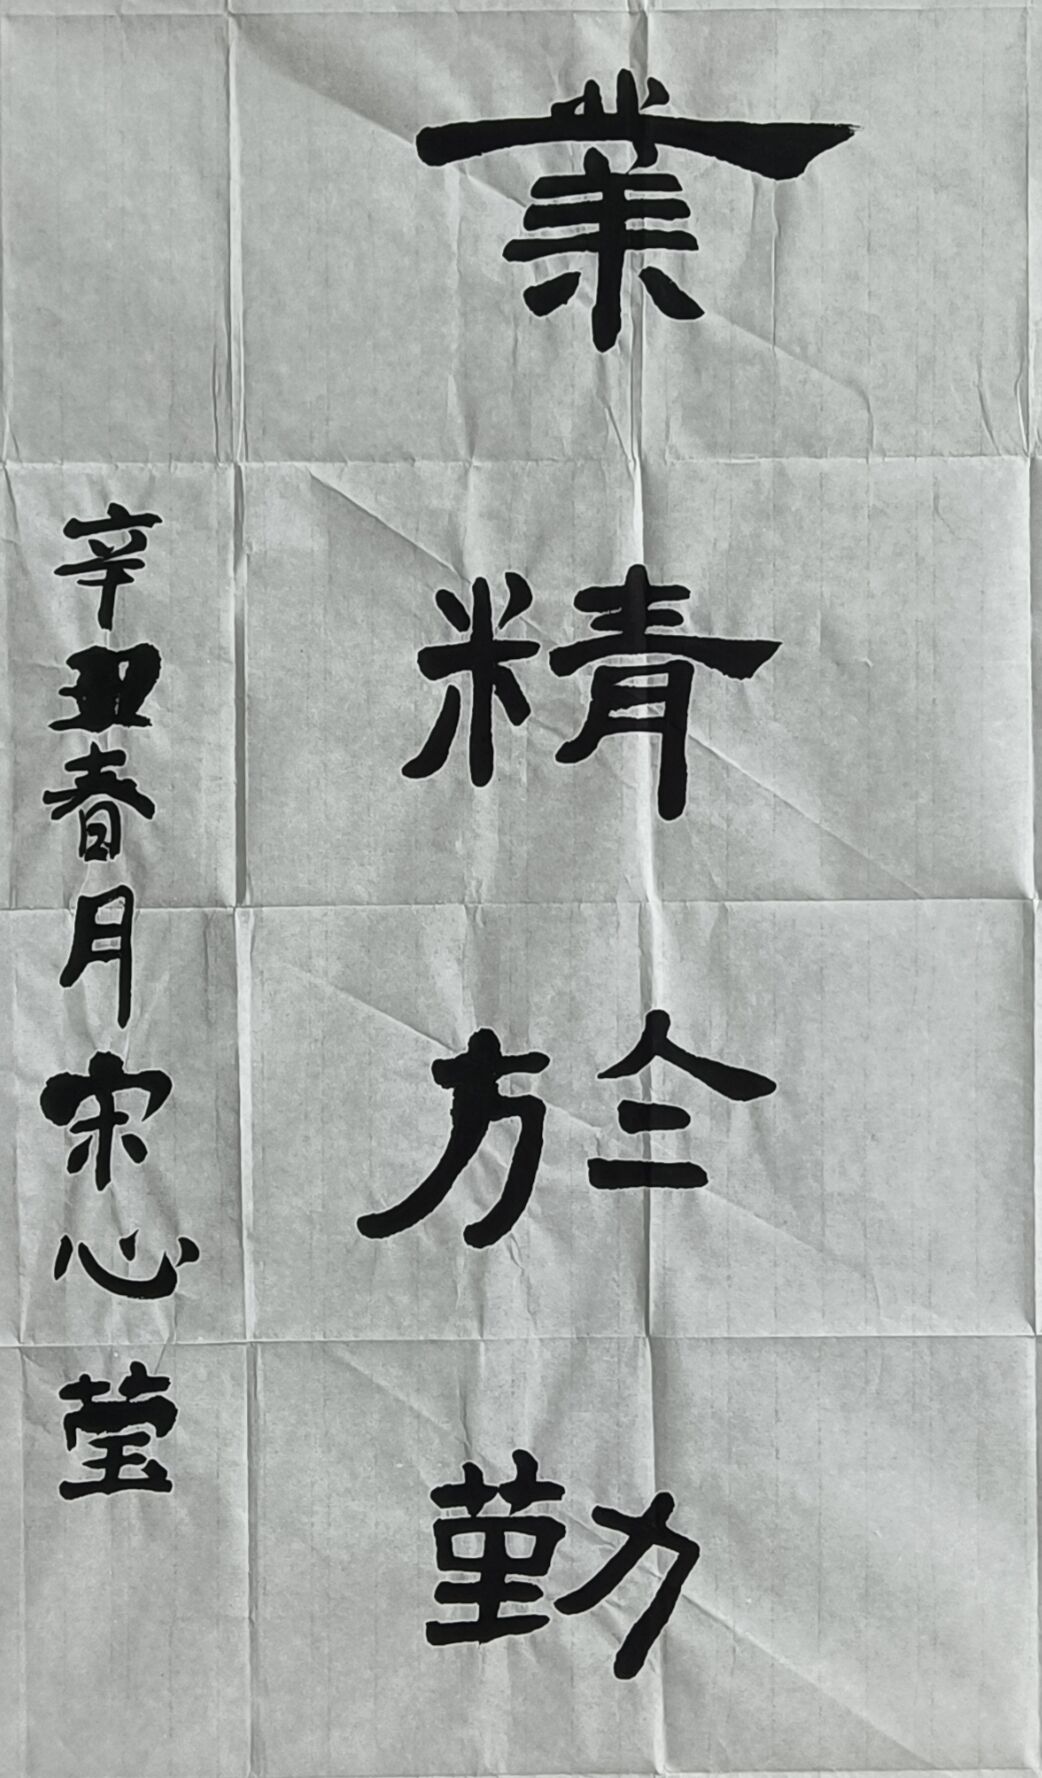 業精於勤
辛丑春月宋心莹